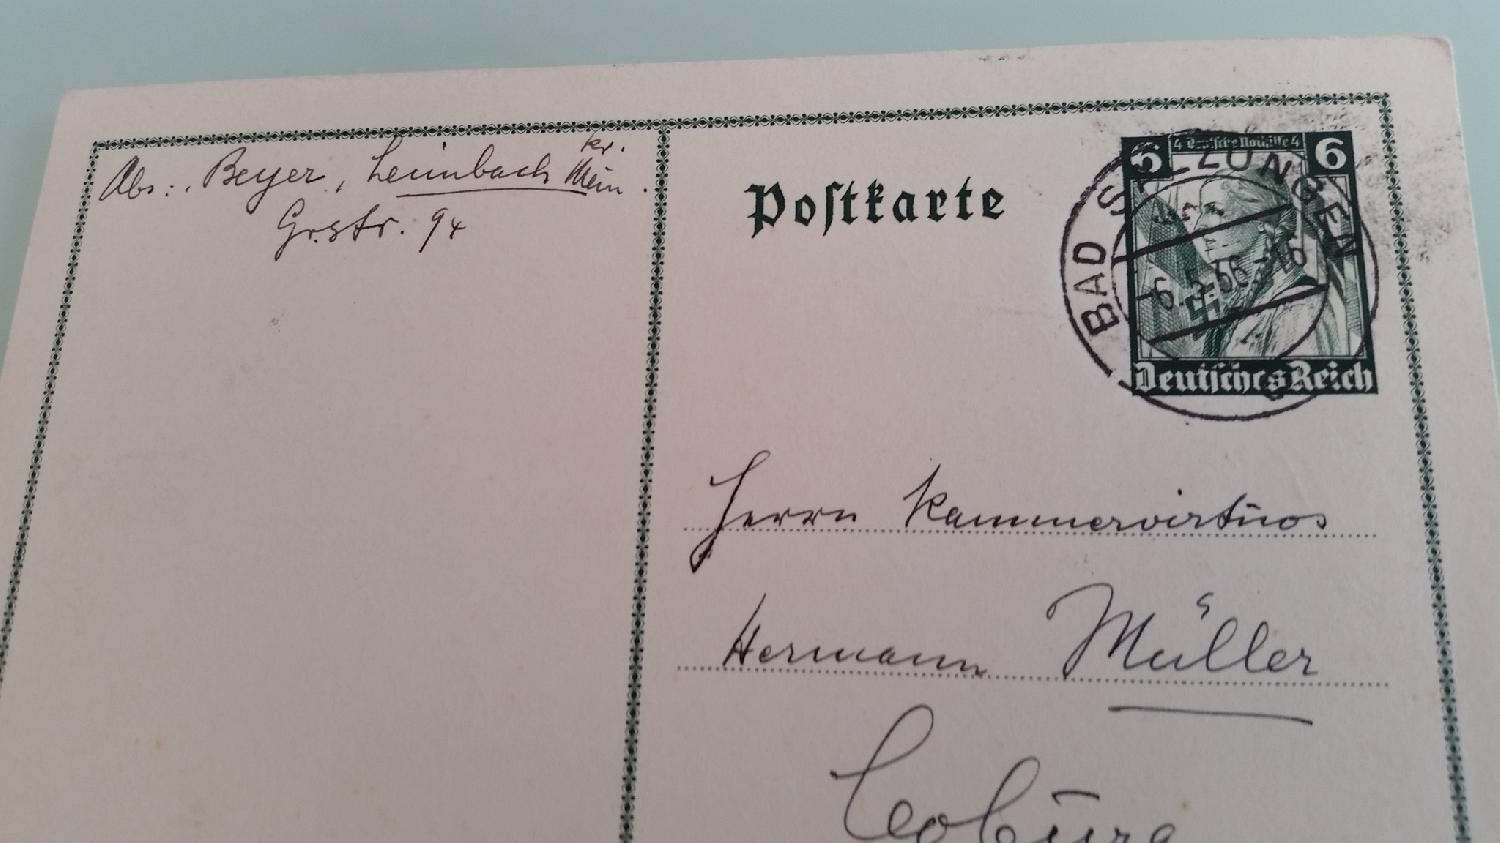 Abs.: Beyer, Leimbach Kr. Mein.
Gr.str. 94
Postkarte
6 6
Deutsches Reich
BAD SALZUNGEN
-6.5.36-16
Herrn Kammervirtuos
Hermann Müller
Coburg